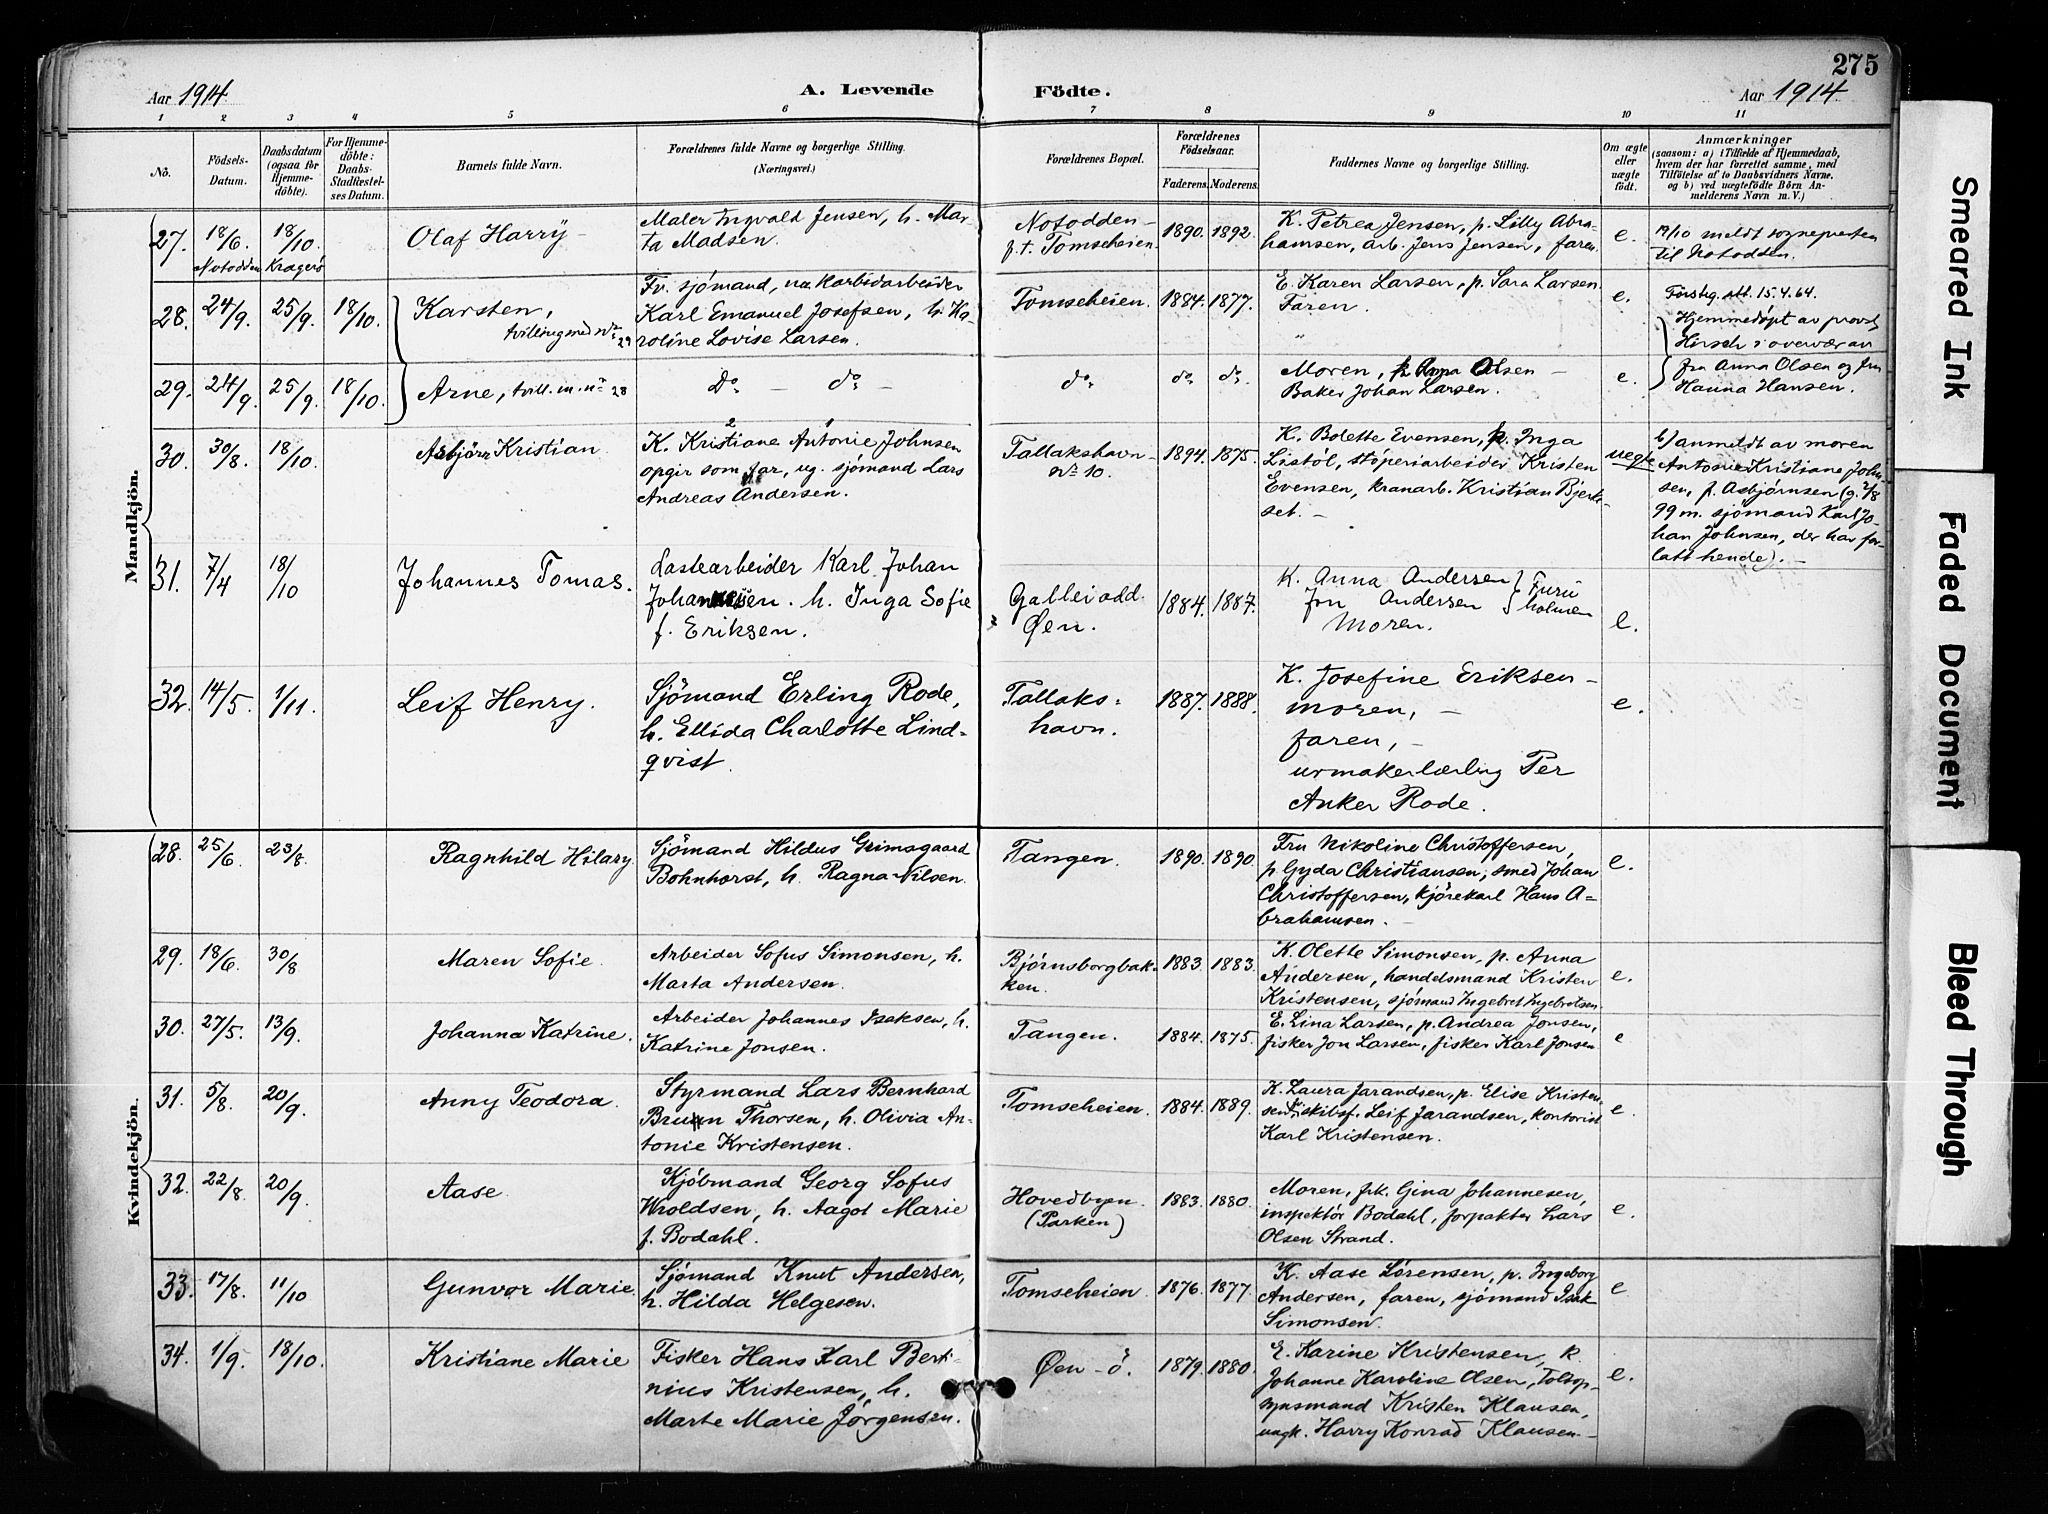 275
Aar 1914.
A. Levende
Födte.
Aar 1914
1 2 3 4 5 6 7 8 9 10 11
No.
Födsels-
Datum.
Daabsdatum
(ogsaa for
Hjemme-
döbte).
For Hjemme-
döbte:
Daabs-
Stadfæstel-
ses Datum.
Barnets fulde Navn.
Forældrenes fulde Navne og borgerlige Stilling.
(Næringsvei.)
Forældrenes Bopæl.
Forældrenes
Födselsaar.
Faderens. Moderens.
Faddernes Navne og borgerlige Stilling.
Om ægte
eller
uægte
födt.
Anmærkninger
(saasom: a) i Tilfælde af Hjemmedaab,
hvem der har forrettet samme, med
Tilföielse af to Daabsvidners Navne,
og b) ved uægtefödte Börn An-
melderens Navn m. V.)
Mandkjön.
27. 18/6. Notodden 18/10. Kragerö
Olaf Harry -
Maler Ingvald Jensen, h. Mar-
ta Madsen.
Notodden -
f. t. Tomseheien.
1890. 1892.
K. Petrea Jensen, p. Lilly Abra-
hamsen, arb. Jens Jensen, faren.
e.
19/10 meldt sognepresten
til Notodden.
28. 24/9. 25/9. 18/10.
Karsten,
tvilling med nr 29
Fv. sjömand, nu karbidarbeider
Karl Emanuel Josefsen, h. Ka-
roline Lovise Larsen.
Tomseheien.
1884. 1877.
E. Karen Larsen, p. Sara Larsen
Faren.
"
e.
15.4.64.
Hjemmedöpt av provst
Hirsch i overvær av
29. 24/9. 25/9. 18/10.
Arne, tvill. m. nr 28
do - do -
do. do. do.
Moren, p. Anna Olsen -
Baker Johan Larsen.
e.
fru Anna Olsen og fru
Hanna Hansen.
30. 30/8. 18/10.
Asbjörn Kristian
K. Kristiane Antonie Johnsen
opgir som far, ug. sjömand Lars
Andreas Andersen.
Tallakshavn -
nr 10.
1894. 1875.
K. Bolette Evensen, p. Inga
Listöl, stöperiarbeider Kristen
Evensen, kranarb. Kristian Bjerke-
set. -
uegte
b) anmeldt av moren
Antonie Kristiane John-
sen, f. Asbjörnsen (g. 2/8
99 m. sjömand Karl Jo-
han Johnsen, der har for-
latt hende). -
31. 7/4 18/10
Johannes Tomas.
Lastearbeider Karl Johan
Johannesen. h. Inga Sofie
f. Eriksen.
Galleiodd.
Øen.
1884. 1887.
K. Anna Andersen
Jon Andersen } Furu
holmen
Moren.
e.
32. 14/5. 1/11.
Leif Henry.
Sjömand Erling Rode,
h. Ellida Charlotte Lind-
qvist.
Tallaks-
havn.
1887. 1888.
K. Josefine Eriksen -
moren, -
faren, -
urmakerlærling Per
Anker Rode.
e.
Kvindekjön.
28. 25/6. 23/8.
Ragnhild Hilary
Sjömand Hildus Grimsgaard
Bohnhorst, h. Ragna Nilsen.
Tangen.
1890. 1890
Fru Nikoline Christoffersen,
p Gyda Christiansen, smed Johan
Christoffersen, kjörekarl Hans A-
brahamsen. -
e.
29. 18/6. 30/8
Maren Sofie.
Arbeider Sofus Simonsen, h.
Marta Andersen.
Bjórnsborgbak-
ken.
1883. 1883.
K. Olette Simonsen, p. Anna
Andersen, handelsmand Kristen
Kristensen, sjömand Ingebret Ingebretsen.
e.
30. 27/5. 13/9.
Johanna Katrine.
Arbeider Johannes Isaksen, h.
Katrine Jonsen.
Tangen.
1884. 1875.
E. Lina Larsen, p. Andrea Jonsen,
fisker Jon Larsen, fisker Karl Jonsen
e
31. 5/8. 20/9.
Anny Teodora.
Styrmand Lars Bernhard
Bruun Thorsen, h. Olivia An-
tonie Kristensen.
Tomseheien.
1884. 1889.
K. Laura Jarandsen, p. Elise Kristen-
sen, Leif Jarandsen, kontorist
Karl Kristensen.
e.
32. 22/8. 20/9.
Aase.
Kjöbmand Georg Sofus
Wroldsen, h. Aagot Marie
f. Bodahl.
Hovedbyen.
(Parken)
1883. 1880.
Moren, frk. Gina Johannesen,
inspektör Bodahl, forpakter Lars
Olsen Strand.
e.
33. 17/8. 11/10
Gunvor Marie.
Sjömand Knut Andersen,
h. Hilda Helgesen.
Tomseheien.
1876. 1877.
K. Aase Sörensen, p. Ingeborg
Andersen, faren, sjömand Isak
Simonsen.
e.
34. 1/9. 18/10.
Kristiane Marie
Fisker Hans Karl Berti-
nius Kristensen, h.
Marte Marie Jörgensen.
Øen - ö.
1879. 1880.
E. Karine Kristensen, K.
Johanne Karoline Olsen, Toldop-
synsmand Kristen Klausen,
ungk. Harry Konrad Klausen -
e.
Smeared Ink
Faded Document
Bleed Through